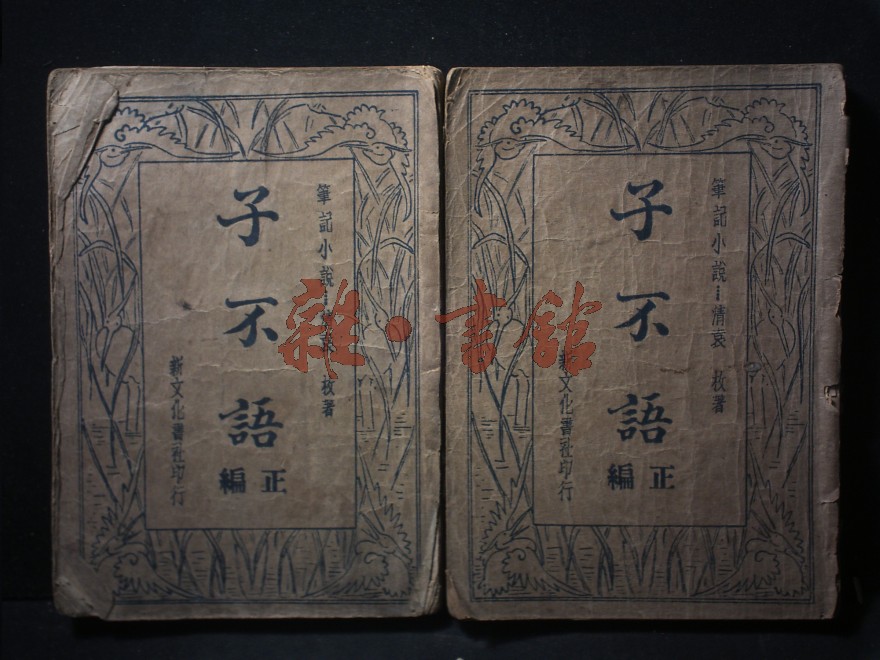 筆記小說⋯清袁枚著
子不語
正編
新文化書社印行
筆記小說⋯清袁枚著
子不語
正編
新文化書社印行
雜·書館